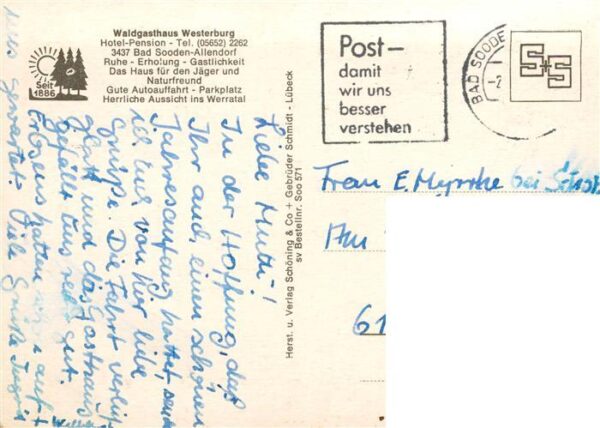 Waldgasthaus Westerburg
Hotel-Pension - Tel. (05652) 2262
3437 Bad Sooden-Allendorf
Ruhe - Erholung - Gastlichkeit
Das Haus für den Jäger und
Naturfreund
Gute Autoauffahrt - Parkplatz
Herrliche Aussicht ins Werratal
Seit
1886
Post-
damit
wir uns
besser
verstehen
BAD SOODE
-2
S+S
Herst. u. Verlag Schöning & Co + Gebrüder Schmidt - Lübeck
sv Bestellnr. Soo 571
Frau E. bei
Am
61
Liebe Mutti!
In der Hoffnung, daß
Ihr auch einen schönen
Jahresanfang hattet, sendet
Ulli uns von hier liebe
Grüße. Die Fahrt verlief
glatt und das Gasthaus
gefällt uns recht gut.
Erbsens hatten auf
uns gewartet. Viele Grüße